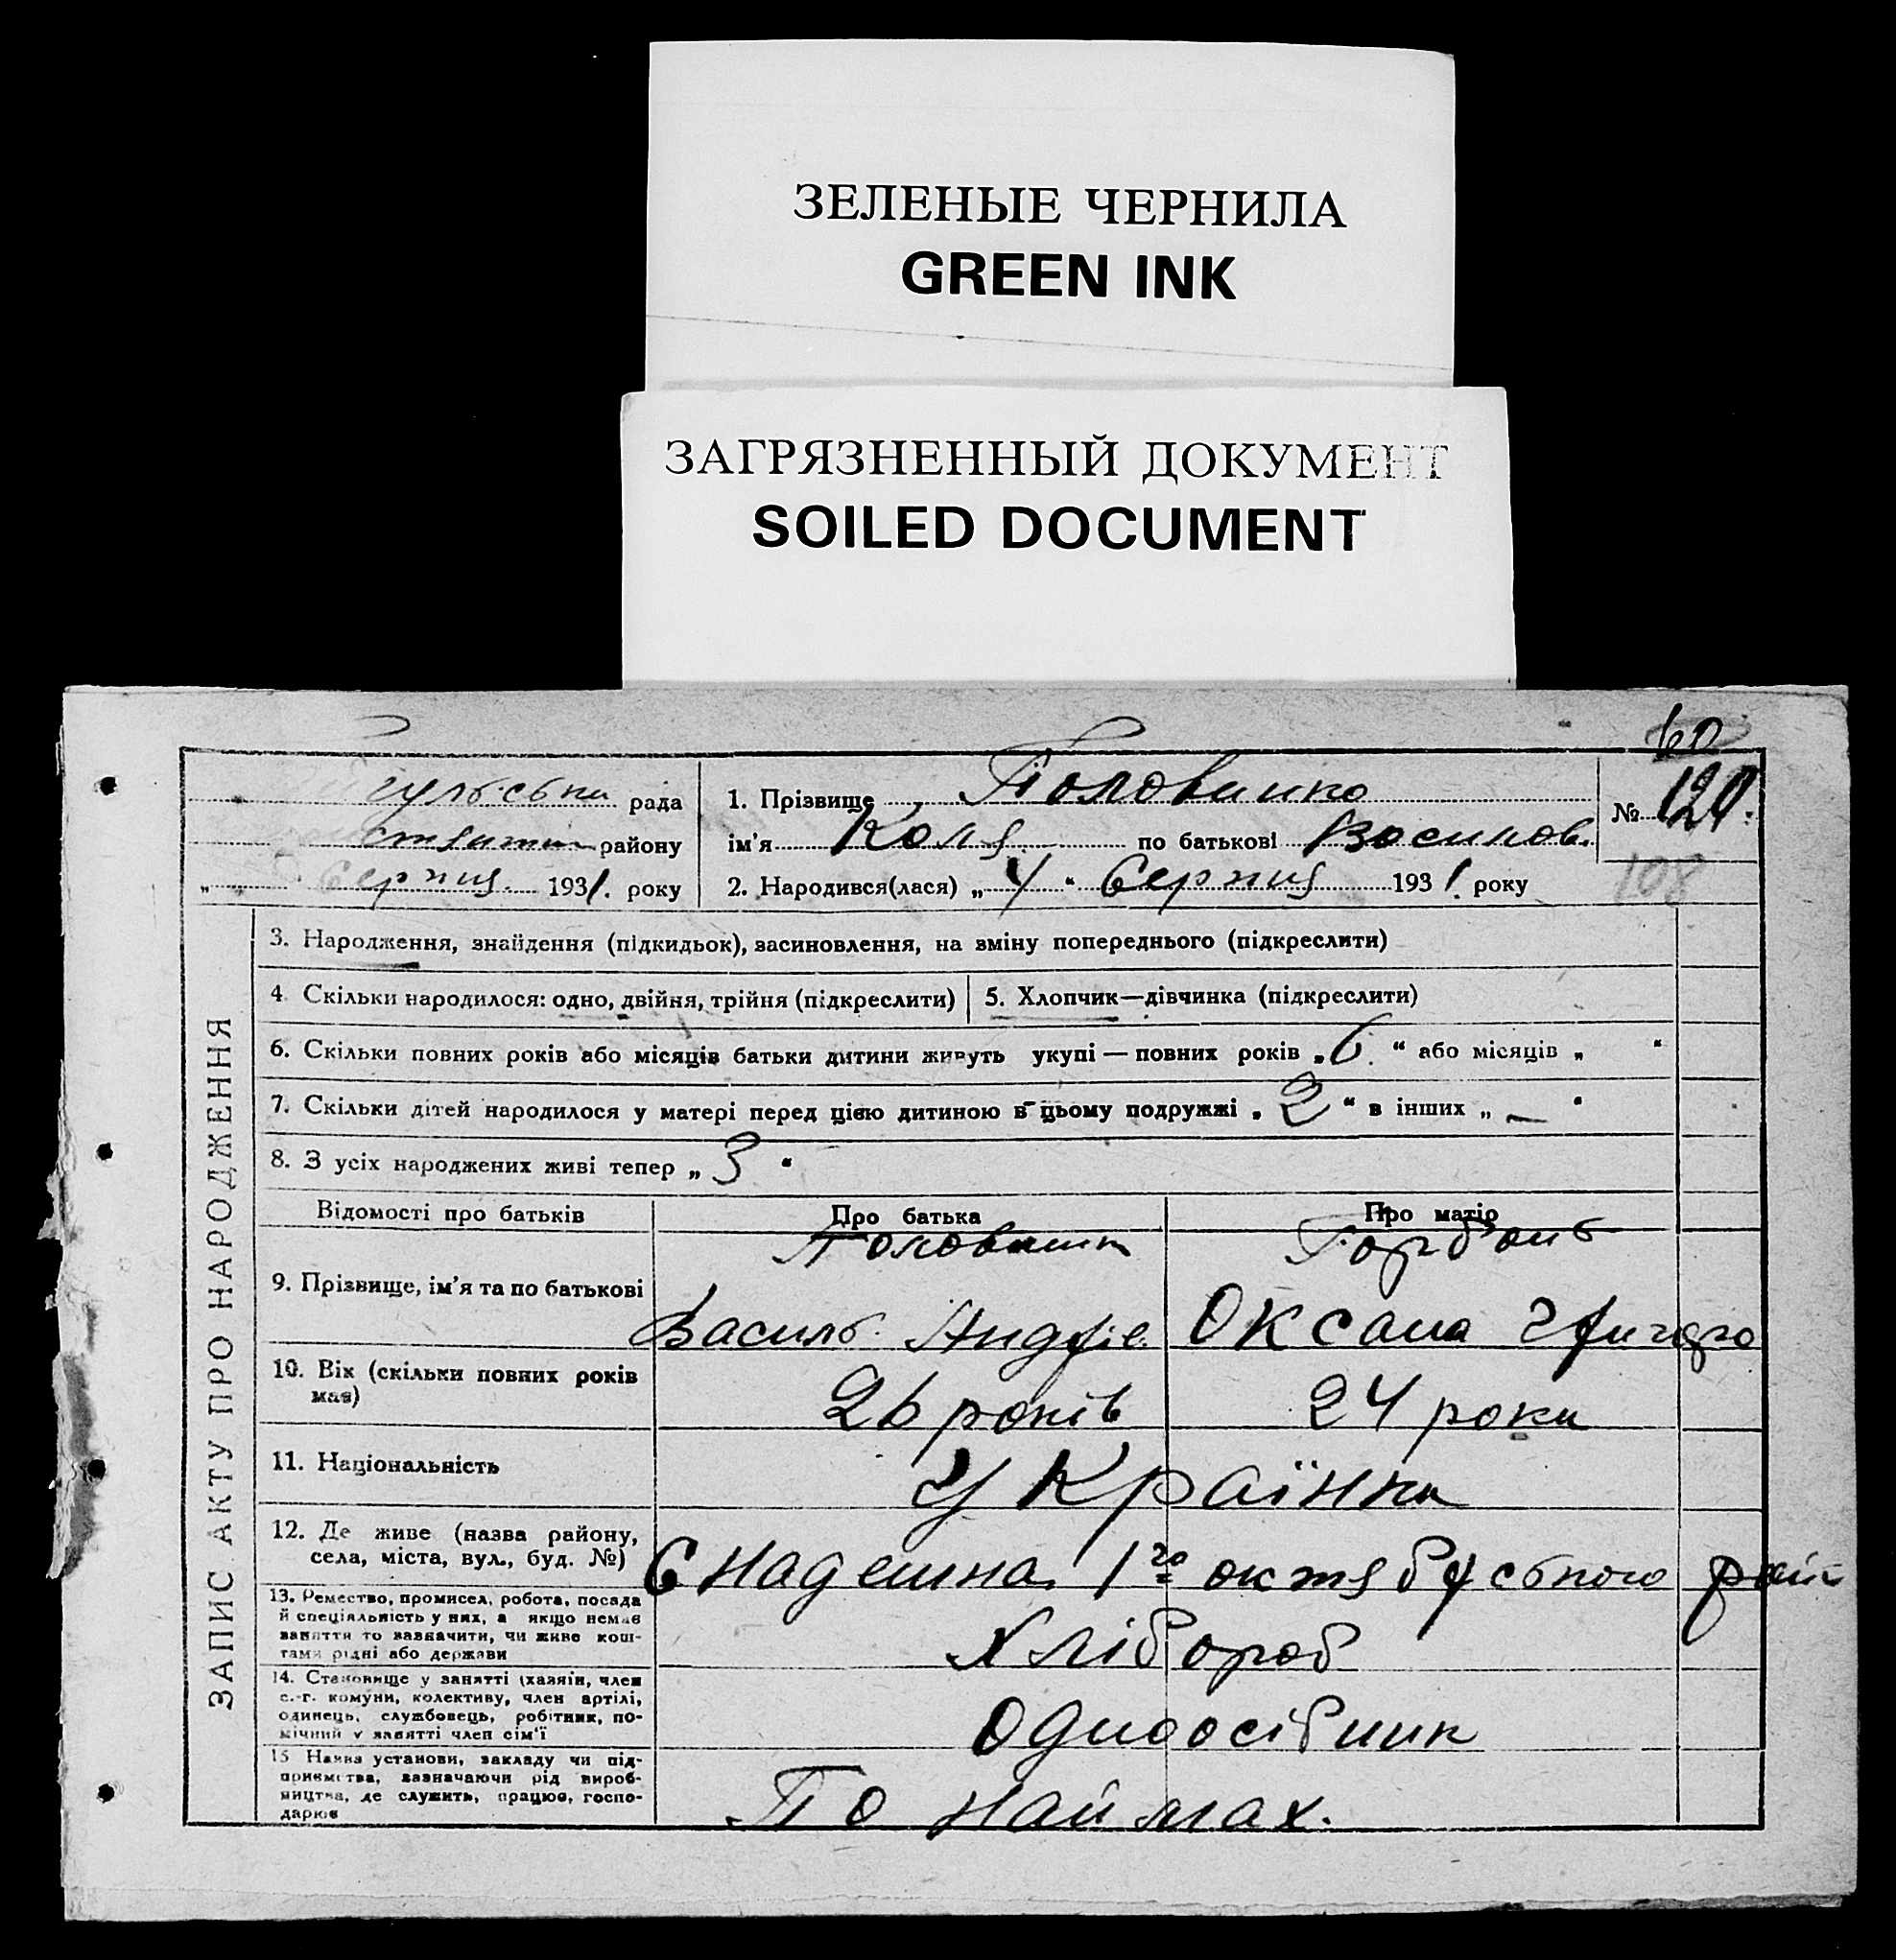 ЗЕЛЕНЫЕ ЧЕРНИЛА
GREEN INK
ЗАГРЯЗНЕННЫЙ ДОКУМЕНТ
SOILED DOCUMENT
рада
району
Серпня 1931. року
1. Прізвище Половинко
ім'я Коля по батькові Васильов.
2. Народився(лася) „4“ Серпня 1931. року
60
№ 120.
108
ЗАПИС АКТУ ПРО НАРОДЖЕННЯ
3. Народження, знайдення (підкидьок), засиновлення, на зміну попереднього (підкреслити)
4. Скільки народилося: одно, двійня, трійня (підкреслити)
5. Хлопчик—дівчинка (підкреслити)
6. Скільки повних років або місяців батьки дитини живуть укупі — повних років „6.“ або місяців „ “
7. Скільки дітей народилося у матері перед цією дитиною в цьому подружжі „2“ в інших „—“
8. З усіх народжених живі тепер „3“
Відомості про батьків
Про батька
Про матір
9. Прізвище, ім'я та по батькові
Половинк
Василь. Андріє.
Оксана Григоро
10. Вік (скільки повних років
має)
26 років
24 роки
11. Національність
Українки
12. Де живе (назва району,
села, міста, вул., буд. №)
1го октябрського рай
13. Ремество, промисел, робота, посада
й спеціяльність у них, а якщо немає
заняття то зазначити, чи живе кош-
тами рідні або держави
Хлібороб
14. Становище у занятті (хазяїн, член
с.-г. комуни, колективу, член артілі,
одинець, службовець, робітник, по-
мічний у занятті член сім'ї
Одноосібник
15 Назва установи, закладу чи під-
приємства, зазначаючи рід вироб-
ництва, де служить, працює, госпо-
дарює
По наймах.